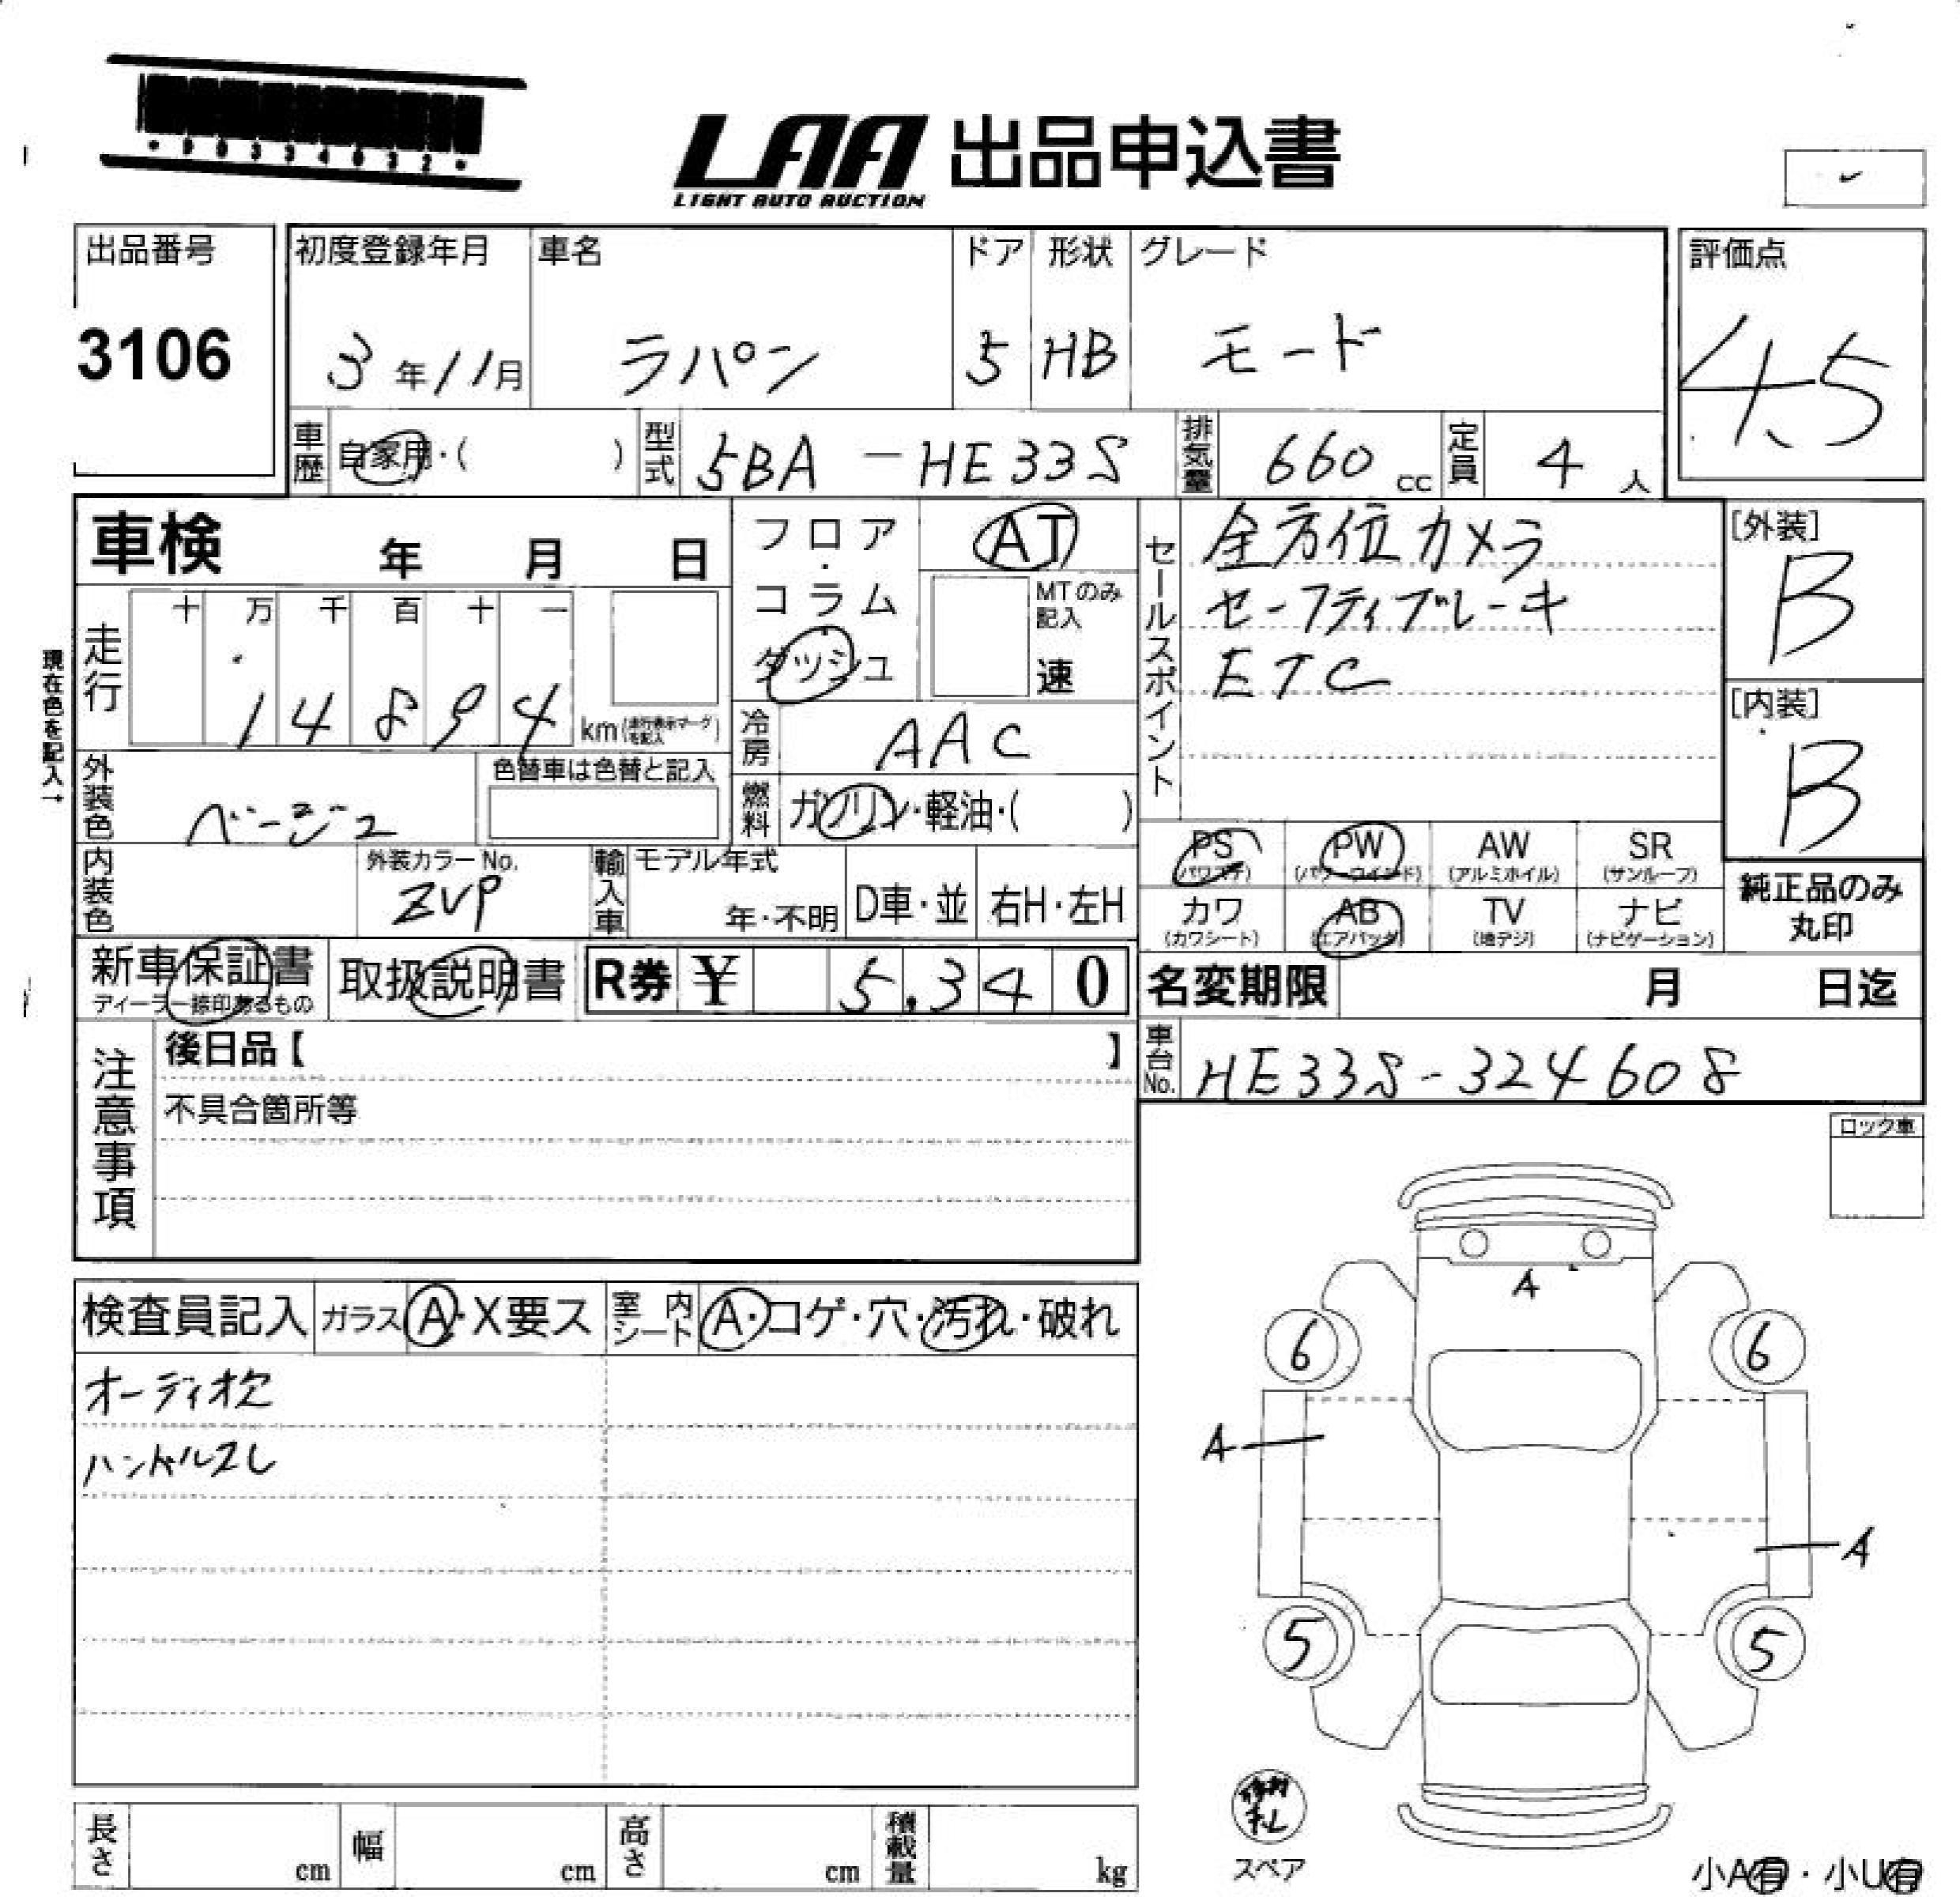 ・P0334032・
LAA 出品申込書
LIGHT AUTO AUCTION
出品番号 初度登録年月 車名 ドア 形状 グレード 評価点
3106 3年11月 ラパン 5 HB モード 4.5
車歴 自家用・( ) 型式 5BA-HE33S 排気量 660cc 定員 4人
車検 年 月 日 フロア・コラム・ダッシュ AT
MTのみ記入 速
セールスポイント 全方位カメラ
セーフティブレーキ
ETC
[外装]
B
[内装]
B
現在色を記入→
走行 十 万 千 百 十 一
14894 km(走行表示マークを記入)
冷房 AAC
外装色 ベージュ 色替車は色替と記入
燃料 ガソリン・軽油・( )
PS (パワステ) PW (パワーウインド) AW (アルミホイル) SR (サンルーフ)
カワ (カワシート) AB (エアバッグ) TV (地デジ) ナビ (ナビゲーション)
純正品のみ
丸印
内装色 外装カラーNo. ZVP 輸入車 モデル年式 年・不明 D車・並 右H・左H
新車保証書 ディーラー捺印あるもの 取扱説明書 R券 ¥ 5,340
名変期限 月 日迄
注意事項 後日品【 】
不具合箇所等
車台No. HE33S-324608
ロック車
検査員記入 ガラス A・X要ス 室内シート A・コゲ・穴・汚れ・破れ
オーディオ欠
ハンドルスレ
A
6 6
A
A
5 5
スペア
長さ cm 幅 cm 高さ cm 積載量 kg
小A有・小U有